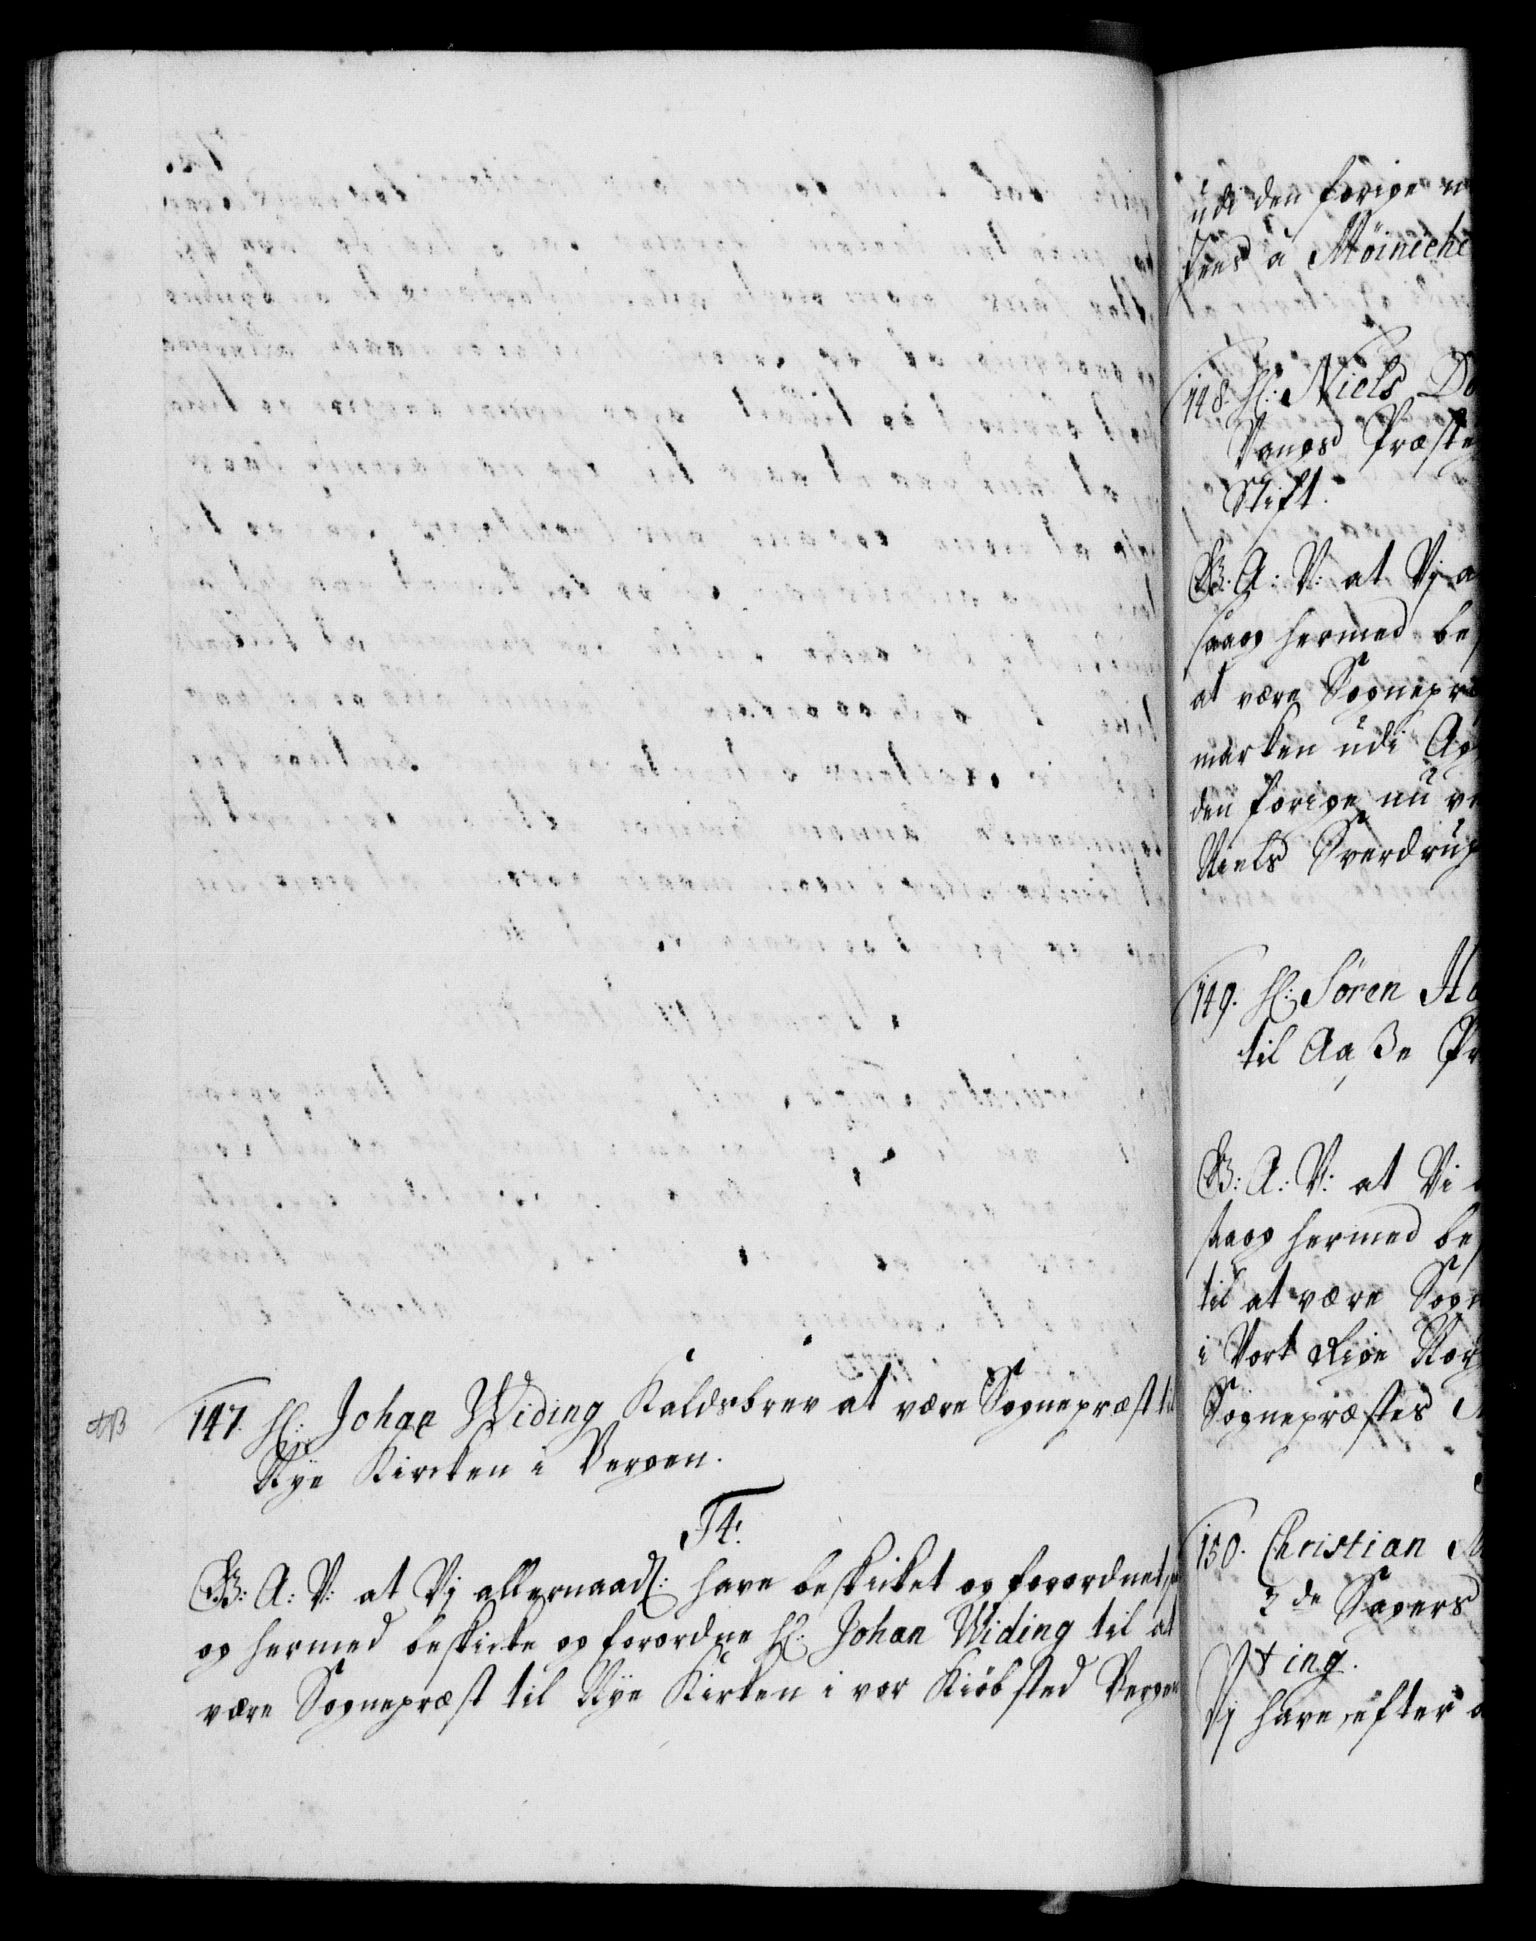 147. Hl: Johan Widing Kaldsbrev at være Sognepræst til
Nye Kircken i Bergen.
F4.
G: A: V: at Vj allernaadl: have beskicket og forordnet,
og hermed beskicke og forordne Hl: Johan Widing til at
være Sognepræst til Nye Kirken i vor Kiöbsted Bergen
udi den forige n
Jens á Möiniche
148. Hl: Niels Do
Vangs Præste
Stift.
G: A: V: at Vj a
saaog hermed be
at være Sognepræ
marken udi Ag
den forige nu ve
Niels Sverdrup
149. Hl: Sören Ho
til Aaße Pr
G: A: V: at Vi
saaog hermed be
til at være Sogn
i Vort Rige Nor
Sognepræstes
150. Christian
3de Sagers
ting.
Vj have, efter